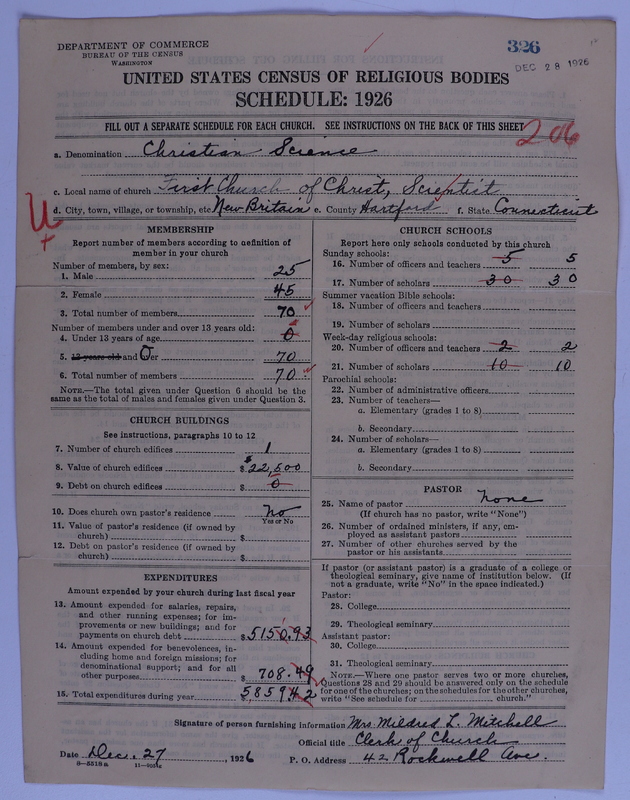 DEPARTMENT OF COMMERCE
BUREAU OF THE CENSUS
WASHINGTON
326
DEC 28 1926
UNITED STATES CENSUS OF RELIGIOUS BODIES
SCHEDULE: 1926
FILL OUT A SEPARATE SCHEDULE FOR EACH CHURCH. SEE INSTRUCTIONS ON THE BACK OF THIS SHEET
206
a. Denomination Christian Science
c. Local name of church First Church of Christ, Scientist
d. City, town, village, or township, etc New Britain e. County Hartford f. State Connecticut
MEMBERSHIP
Report number of members according to definition of
member in your church
Number of members, by sex:
1. Male 25
2. Female 45
3. Total number of members 70
Number of members under and over 13 years old:
4. Under 13 years of age 0
5. 13 years old and Over 70
6. Total number of members 70
NOTE.—The total given under Question 6 should be the
same as the total of males and females given under Question 3.
CHURCH BUILDINGS
See instructions, paragraphs 10 to 12
7. Number of church edifices 1
8. Value of church edifices $ 22,500
9. Debt on church edifices $ 0
10. Does church own pastor's residence no
Yes or No
11. Value of pastor's residence (if owned by
church) $
12. Debt on pastor's residence (if owned by
church) $
EXPENDITURES
Amount expended by your church during last fiscal year
13. Amount expended for salaries, repairs,
and other running expenses; for im-
provements or new buildings; and for
payments on church debt $ 5150.93
14. Amount expended for benevolences, in-
cluding home and foreign missions; for
denominational support; and for all
other purposes $ 708.49
15. Total expenditures during year $ 5859.42
CHURCH SCHOOLS
Report here only schools conducted by this church
Sunday schools:
16. Number of officers and teachers 5 5
17. Number of scholars 30 30
Summer vacation Bible schools:
18. Number of officers and teachers
19. Number of scholars
Week-day religious schools:
20. Number of officers and teachers 2 2
21. Number of scholars 10 10
Parochial schools:
22. Number of administrative officers
23. Number of teachers—
a. Elementary (grades 1 to 8)
b. Secondary
24. Number of scholars—
a. Elementary (grades 1 to 8)
b. Secondary
PASTOR
25. Name of pastor none
(If church has no pastor, write "None")
26. Number of ordained ministers, if any, em-
ployed as assistant pastors
27. Number of other churches served by the
pastor or his assistants
If pastor (or assistant pastor) is a graduate of a college or
theological seminary, give name of institution below. (If
not a graduate, write "No" in the space indicated.)
Pastor:
28. College
29. Theological seminary
Assistant pastor:
30. College
31. Theological seminary
NOTE.—Where one pastor serves two or more churches,
Questions 28 and 29 should be answered only on the schedule
for one of the churches; on the schedules for the other churches,
write "See schedule for church."
Signature of person furnishing information Mrs. Mildred L. Mitchell
Official title Clerk of Church
Date Dec. 27, 1926 P. O. Address 42 Rockwell Ave.